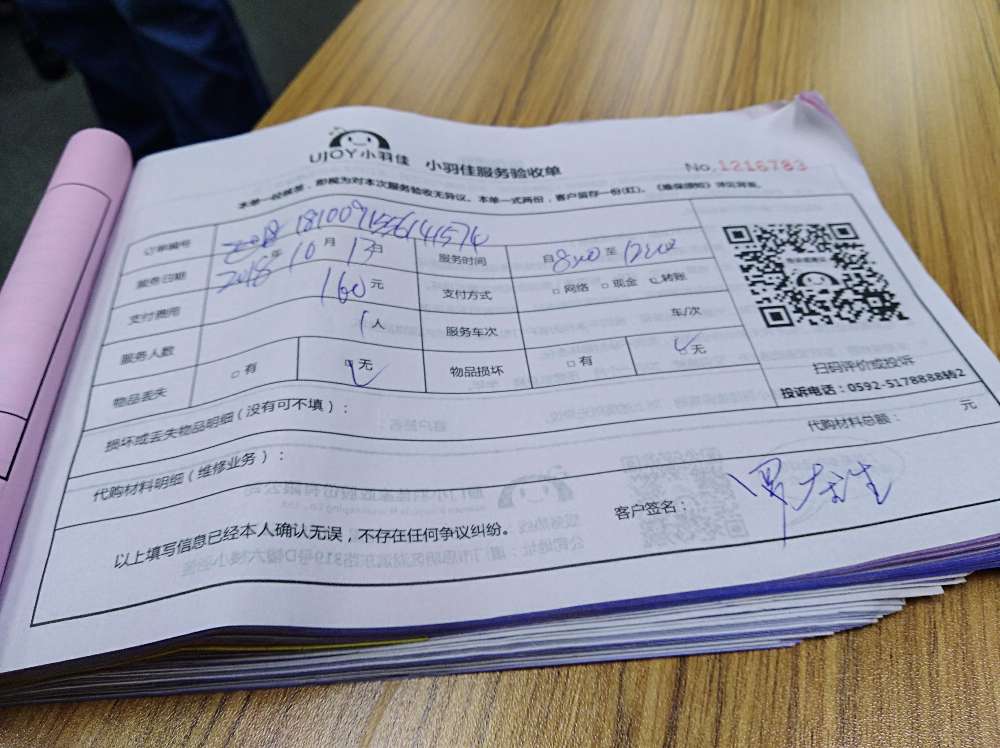 UJOY小羽佳 小羽佳服务验收单 No.1216783
本单一经候签，即视为对本次服务验收无异议。本单一式两份，客户留存一份(红)。《维保须知》详见背面。
订单编号 181009156141574
服务日期 2018年10月13日 服务时间 自8:00至12:00
支付费用 160元 支付方式 □网络 □现金 □转账
服务人数 1人 服务车次 车/次
物品丢失 □有 □无 物品损坏 □有 □无
扫码评价或投诉
投诉电话：0592-5178888转2
损坏或丢失物品明细（没有可不填）：
代购材料明细（维修业务）： 代购材料总额： 元
以上填写信息已经本人确认无误，不存在任何争议纠纷。 客户签名：